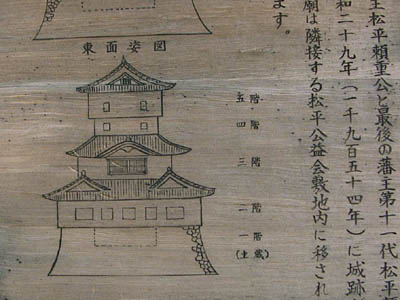 主松平頼重公と最後の藩主第十一代松平
和二十九年(一千九百五十四年)に城跡
廟は隣接する松平公益会敷地内に移され
ます。
東面姿図
五階
四階
三階
二階
一階
(土蔵)